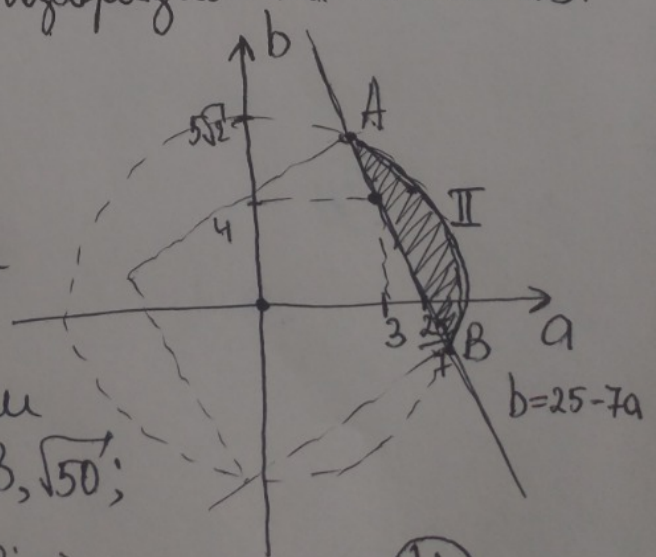 b
A
5√2
II
4
3
B
7
a
b=25-7a
и
В, √50;